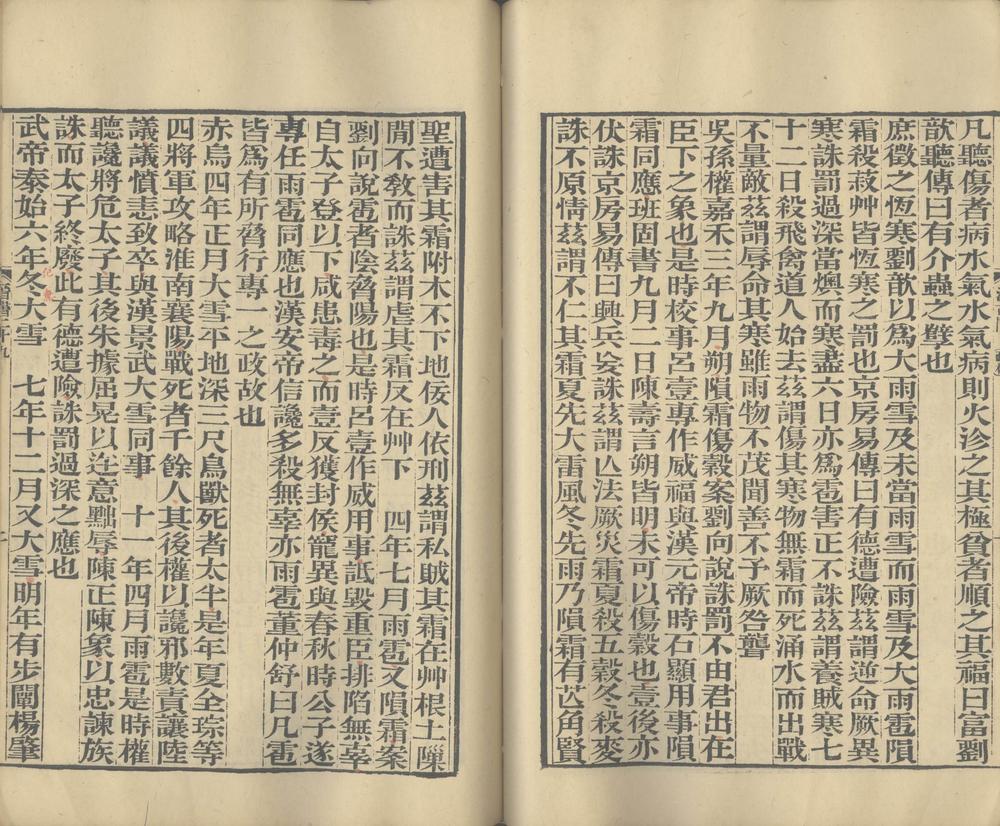 凡聽傷者病水氣水氣病則火沴之其極貧者順之其福曰富劉
歆聽傳曰有介蟲之孼也
庶徵之恆寒劉歆以爲大雨雪及未當雨雪而雨雪及大雨雹隕
霜殺菽艸皆恆寒之罰也京房易傳曰有德遭險茲謂逆命厥異
寒誅罰過深當燠而寒盡六日亦爲雹害正不誅茲謂養賊寒七
十二日殺飛禽道人始去茲謂傷其寒物無霜而死涌水而出戰
不量敵茲謂辱命其寒雖雨物不茂聞善不予厥咎聾
吳孫權嘉禾三年九月朔隕霜傷穀案劉向說誅罰不由君出在
臣下之象也是時校事呂壹專作威福與漢元帝時石顯用事隕
霜同應班固書九月二日陳壽言朔皆明未可以傷穀也壹後亦
伏誅京房易傳曰興兵妄誅茲謂亾法厥災霜夏殺五穀冬殺麥
誅不原情茲謂不仁其霜夏先大雷風冬先雨乃隕霜有芒角賢
聖遭害其霜附木不下地佞人依刑茲謂私賊其霜在艸根土隟
閒不敎而誅茲謂虐其霜反在艸下　四年七月雨雹又隕霜案
劉向說雹者陰脅陽也是時呂壹作威用事詆毀重臣排陷無辜
自太子登以下咸患毒之而壹反獲封侯寵異與春秋時公子遂
專任雨雹同應也漢安帝信讒多殺無辜亦雨雹董仲舒曰凡雹
皆爲有所脅行專一之政故也
赤烏四年正月大雪平地深三尺鳥獸死者太半是年夏全琮等
四將軍攻略淮南襄陽戰死者千餘人其後權以讒邪數責讓陸
議議憤恚致卒與漢景武大雪同事　十一年四月雨雹是時權
聽讒將危太子其後朱據屈晃以迕意黜辱陳正陳象以忠諫族
誅而太子終廢此有德遭險誅罰過深之應也
武帝泰始六年冬大雪　七年十二月又大雪明年有步闡楊肇